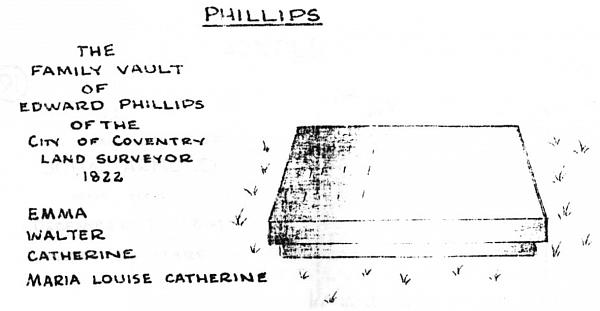 PHILLIPS
THE
FAMILY VAULT
OF
EDWARD PHILLIPS
OF THE
CITY OF COVENTRY
LAND SURVEYOR
1822
EMMA
WALTER
CATHERINE
MARIA LOUISE CATHERINE